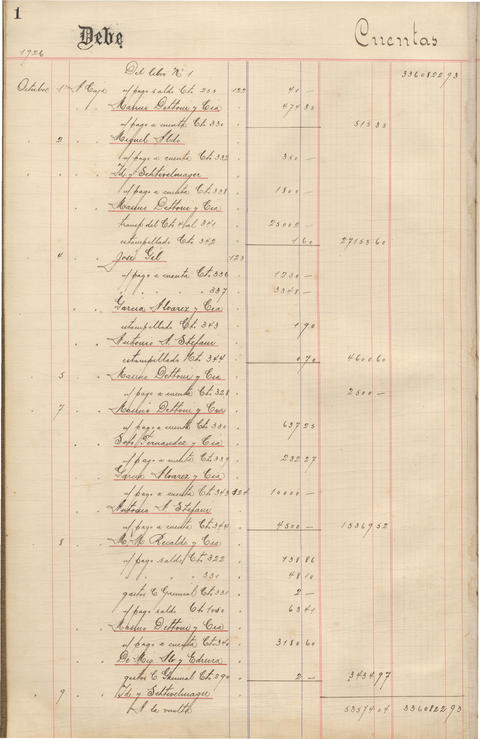 1
Debe Cuentas
1926
Del libro Nº 1 33608293
Octubre 1º A Caja s/ pago saldo Ch. 203 122 40 —
Marino Dettoni y Cia 47433
s/ pago a cuenta Ch. 330 51333
2 Miguel Aldo
s/ pago a cuenta Ch. 332 350 —
Id y Schtivelmager
s/ pago a cuenta Ch. 338 1800 —
Marino Dettoni y Cia
transp del Ch. 4 al 341 25002 —
estampillado Ch. 342 1 60 2715360
4 José Gil 123
s/ pago a cuenta Ch. 336 1250 —
337 3348 —
Garcia Alvarez y Cia
estampillado Ch. 343 1 90
Antonio A Stefani
estampillado Ch. 344 0 70 460060
5 Marino Dettoni y Cia
s/ pago a cuenta Ch. 328 2500 —
7 Marino Dettoni y Cia
s/ pago a cuenta Ch. 330 63725
Soto Fernandez y Cia
s/ pago a cuenta Ch. 339 23227
Garcia Alvarez y Cia
s/ pago a cuenta Ch. 343 124 10000 —
Antonio A Stefani
s/ pago a cuenta Ch. 344 4500 — 1536952
8 M. M. Recalde y Cia
s/ pago saldo Ch. 322 13886
331 4810
gastos C General Ch. 331 2 —
s/ pago saldo Ch. 1050 6341
Marino Dettoni y Cia
s/ pago a cuenta Ch. 340 318060
gastos C General Ch. 290 2 — 343497
9 Id y Schtivelmager
A la vuelta 5357404 33608293